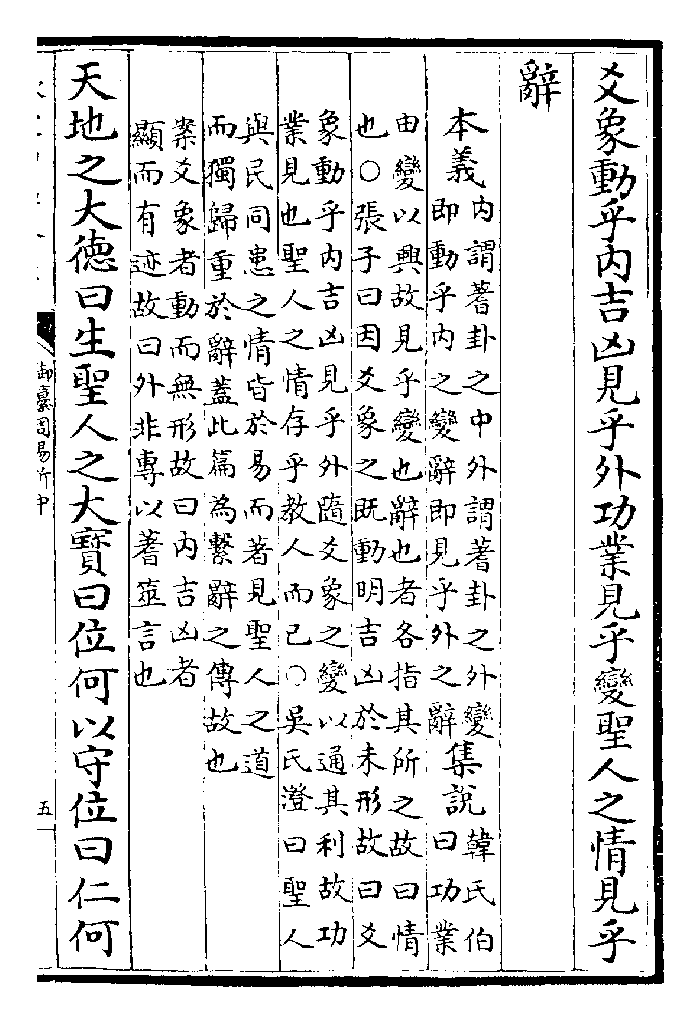 爻象動乎内吉凶見乎外功業見乎變聖人之情見乎
辭
本義
内謂蓍卦之中外謂蓍卦之外變
即動乎内之變辭即見乎外之辭
集說
韓氏伯
曰功業
由變以興故見乎變也辭也者各指其所之故曰情
也○張子曰因爻象之既動明吉凶於未形故曰爻
象動乎内吉凶見乎外隨爻象之變以通其利故功
業見也聖人之情存乎教人而已○吳氏澄曰聖人
與民同患之情皆於易而著見聖人之道
而獨歸重於辭蓋此篇為繫辭之傳故也
案爻象者動而無形故曰内吉凶者
顯而有迹故曰外非專以蓍筮言也
天地之大德曰生聖人之大寳曰位何以守位曰仁何
御纂周易折中
五